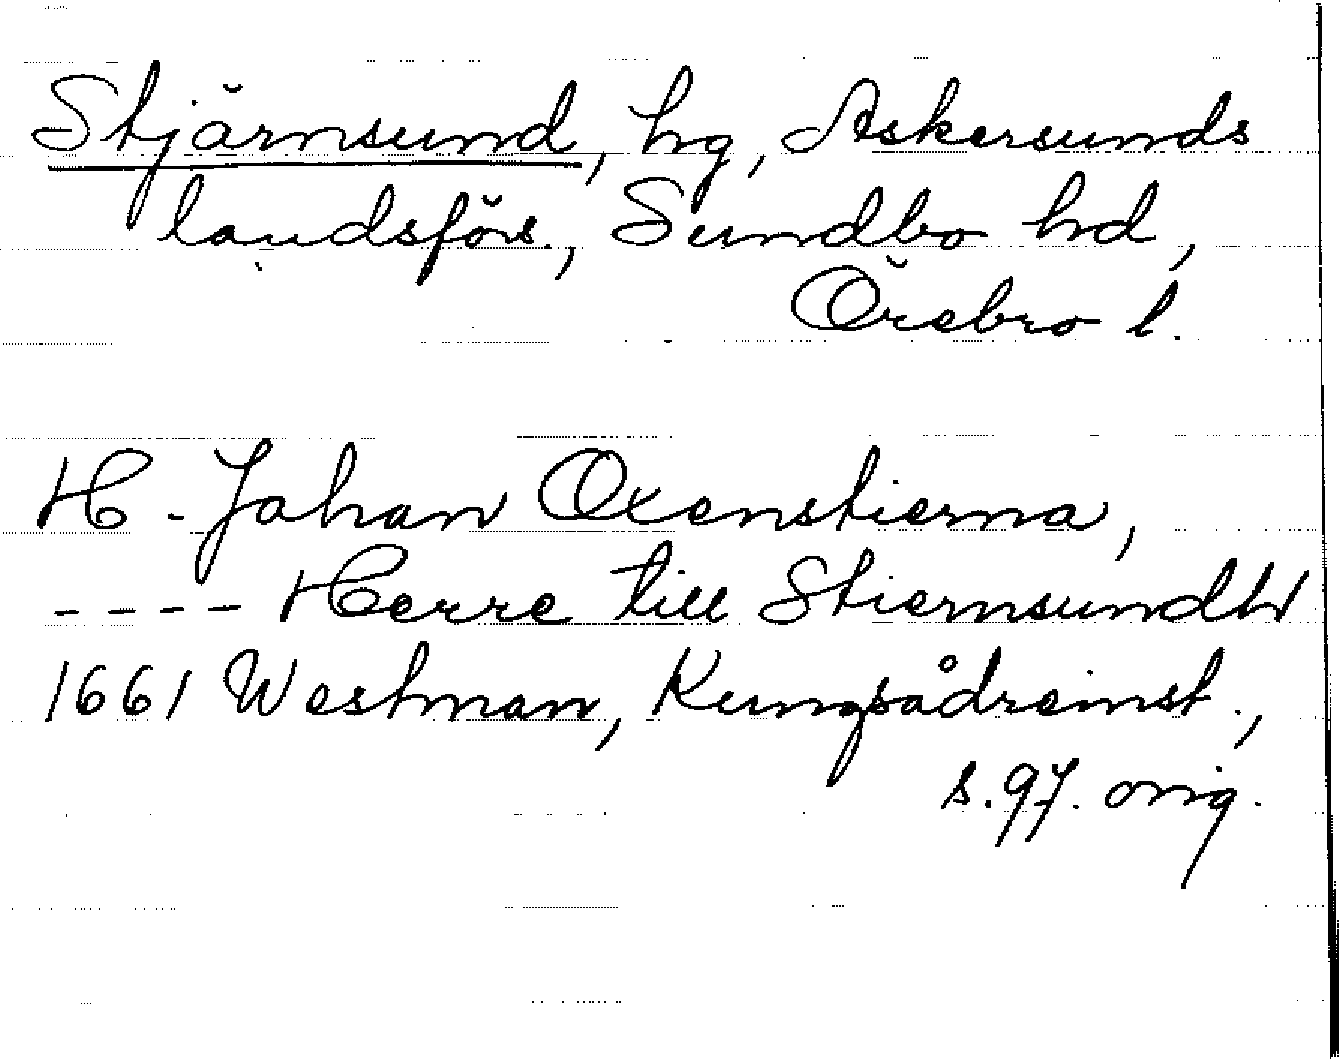 Stjärnsund, hg, Askersunds
landsförs., Sundbo hd,
Örebro l.
H. Johan Oxenstierna,
---- Herre till Stiernsundh
1661 Westman, Kungsådreinst.,
s. 97. orig.